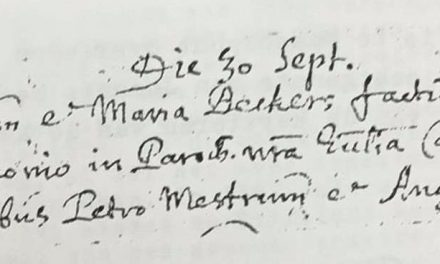 Die 30 Sept.
n et Maria Beckers facti
onio in Paroch. nrã Eccl̃ia
bus Petro Mestrum et Ang